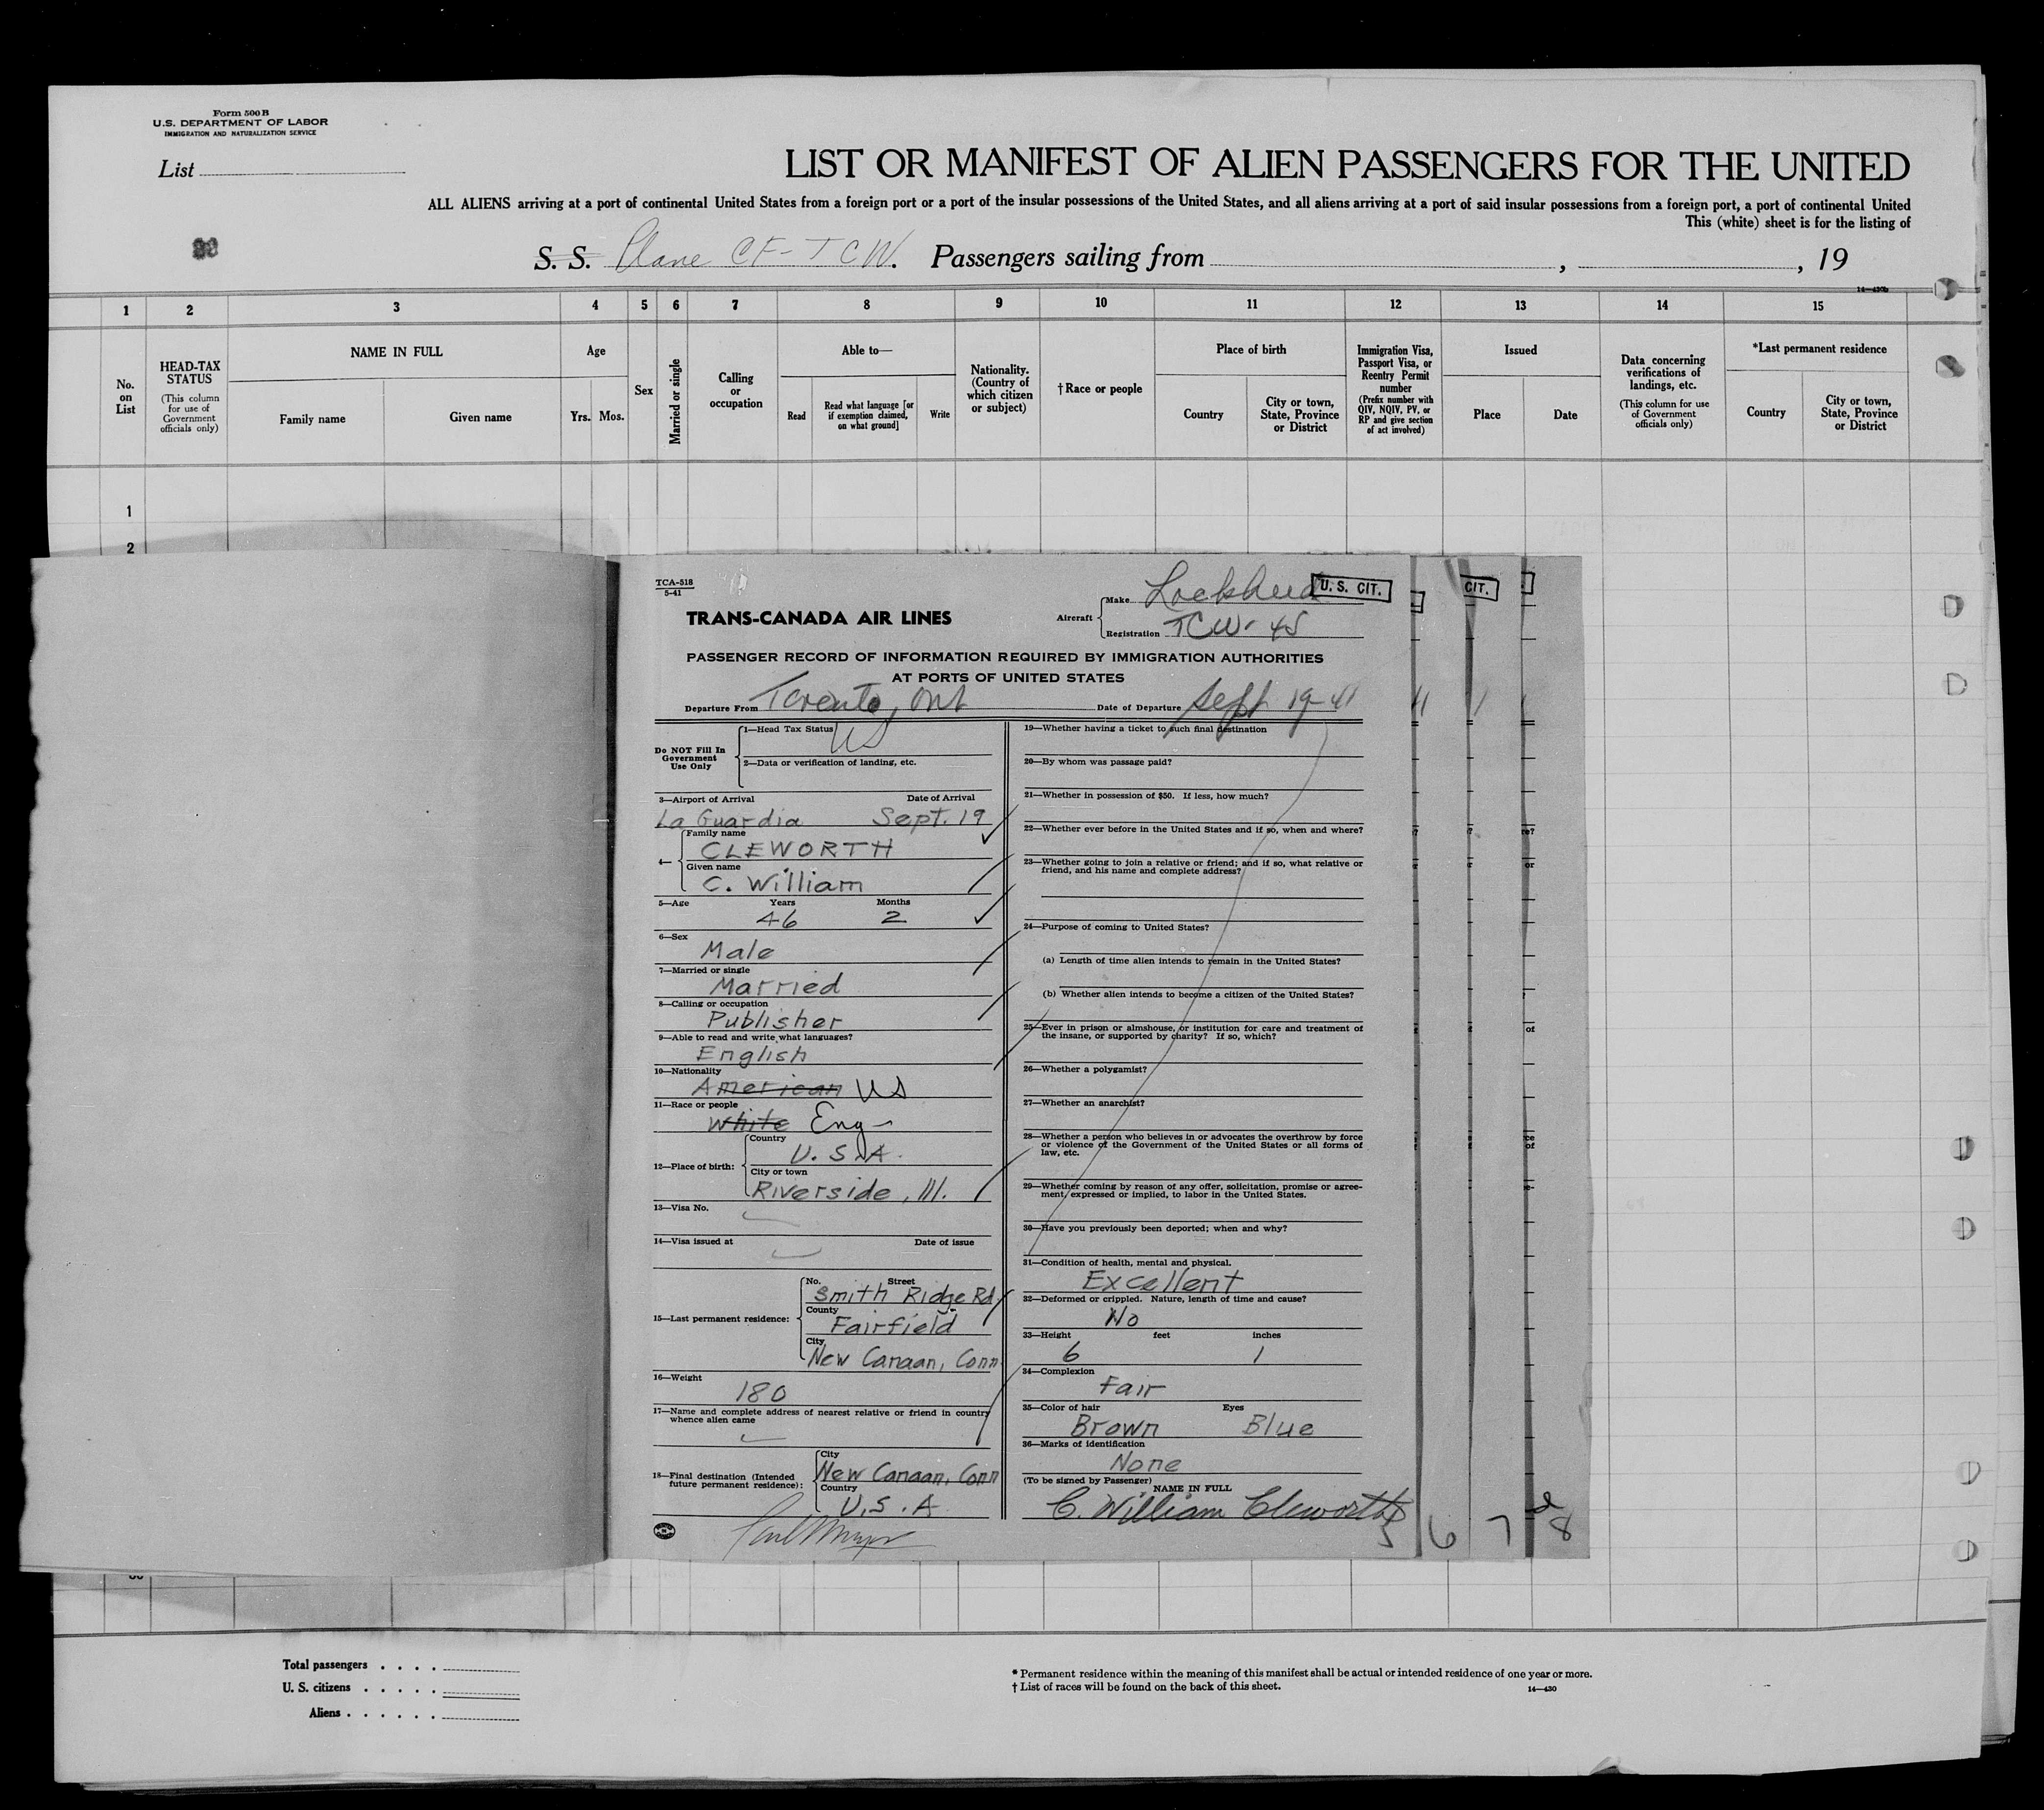 Form 500 B
U.S. DEPARTMENT OF LABOR
IMMIGRATION AND NATURALIZATION SERVICE
List
LIST OR MANIFEST OF ALIEN PASSENGERS FOR THE UNITED
ALL ALIENS arriving at a port of continental United States from a foreign port or a port of the insular possessions of the United States, and all aliens arriving at a port of said insular possessions from a foreign port, a port of continental United
This (white) sheet is for the listing of
S. S. Plane CF-TCW. Passengers sailing from , , 19
14-430b
1 2 3 4 5 6 7 8 9 10 11 12 13 14 15
No. on List
HEAD-TAX STATUS
(This column for use of Government officials only)
NAME IN FULL
Family name
Given name
Age
Yrs. Mos.
Sex
Married or single
Calling or occupation
Able to—
Read
Read what language [or if exemption claimed, on what ground]
Write
Nationality. (Country of which citizen or subject)
† Race or people
Place of birth
Country
City or town, State, Province or District
Immigration Visa, Passport Visa, or Reentry Permit number
(Prefix number with QIV, NQIV, PV, or RP and give section of act involved)
Issued
Place
Date
Data concerning verifications of landings, etc.
(This column for use of Government officials only)
*Last permanent residence
Country
City or town, State, Province or District
1
2
TCA-518
5-41
TRANS-CANADA AIR LINES
Aircraft
Make Lockheed
U. S. CIT.
CIT.
Registration TCW-45
PASSENGER RECORD OF INFORMATION REQUIRED BY IMMIGRATION AUTHORITIES
AT PORTS OF UNITED STATES
Departure From Toronto, Ont Date of Departure Sept 19-41
Do NOT Fill In Government Use Only
1—Head Tax Status US
2—Data or verification of landing, etc.
3—Airport of Arrival Date of Arrival
La Guardia Sept. 19
4— Family name
CLEWORTH
Given name
C. William
5—Age Years Months
46 2
6—Sex
Male
7—Married or single
Married
8—Calling or occupation
Publisher
9—Able to read and write what languages?
English
10—Nationality
American US
11—Race or people
White Eng
12—Place of birth:
Country
U.S.A.
City or town
Riverside, Ill.
13—Visa No.
14—Visa issued at Date of issue
15—Last permanent residence:
No. Street
Smith Ridge Rd
County
Fairfield
City
New Canaan, Conn
16—Weight
180
17—Name and complete address of nearest relative or friend in country
whence alien came
18—Final destination (Intended
future permanent residence):
City
New Canaan, Conn
Country
U.S.A.
19—Whether having a ticket to such final destination
20—By whom was passage paid?
21—Whether in possession of $50. If less, how much?
22—Whether ever before in the United States and if so, when and where?
23—Whether going to join a relative or friend; and if so, what relative or
friend, and his name and complete address?
24—Purpose of coming to United States?
(a) Length of time alien intends to remain in the United States?
(b) Whether alien intends to become a citizen of the United States?
25—Ever in prison or almshouse, or institution for care and treatment of
the insane, or supported by charity? If so, which?
26—Whether a polygamist?
27—Whether an anarchist?
28—Whether a person who believes in or advocates the overthrow by force
or violence of the Government of the United States or all forms of
law, etc.
29—Whether coming by reason of any offer, solicitation, promise or agree-
ment, expressed or implied, to labor in the United States.
30—Have you previously been deported; when and why?
31—Condition of health, mental and physical.
Excellent
32—Deformed or crippled. Nature, length of time and cause?
No
33—Height feet inches
6 1
34—Complexion
Fair
35—Color of hair Eyes
Brown Blue
36—Marks of identification
None
(To be signed by Passenger)
NAME IN FULL
C. William Cleworth
5 6 7 8
Total passengers
U. S. citizens
Aliens
* Permanent residence within the meaning of this manifest shall be actual or intended residence of one year or more.
† List of races will be found on the back of this sheet.
14—430